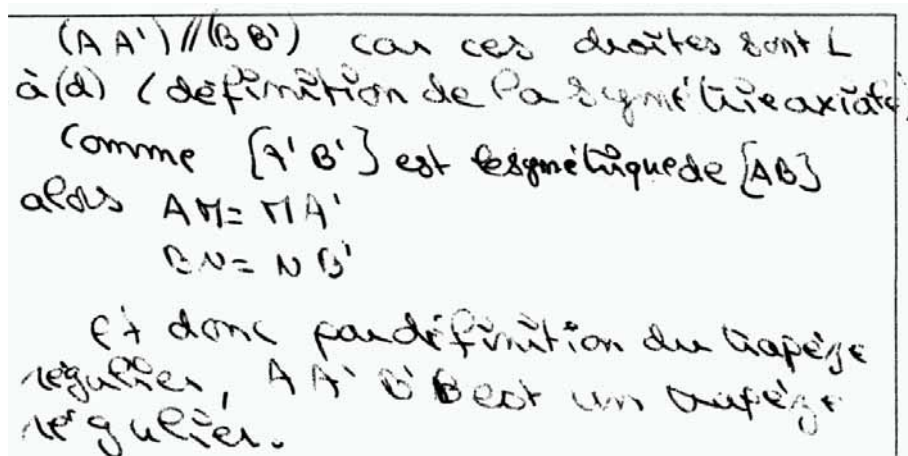 (AA') // (BB') car ces droites sont ⊥
à (d) (définition de la symétrie axiale)
Comme [A'B'] est le symétrique de [AB]
alors AM = MA'
BN = NB'
Et donc par définition du trapèze
régulier, AA'B'B est un trapèze
régulier.